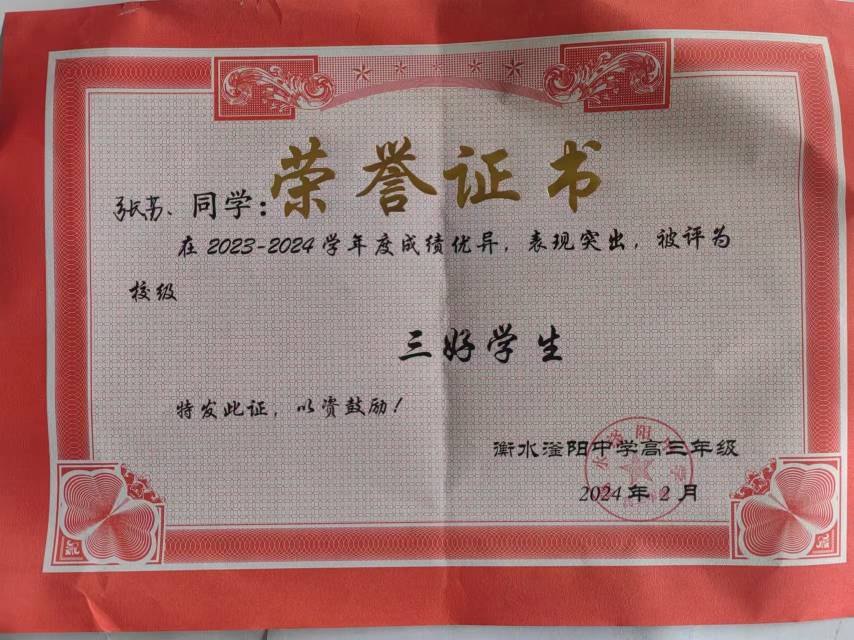 荣誉证书
张芳、同学：
在2023-2024学年度成绩优异，表现突出，被评为
校级
三好学生
特发此证，以资鼓励！
衡水滏阳中学高三年级
2024年2月